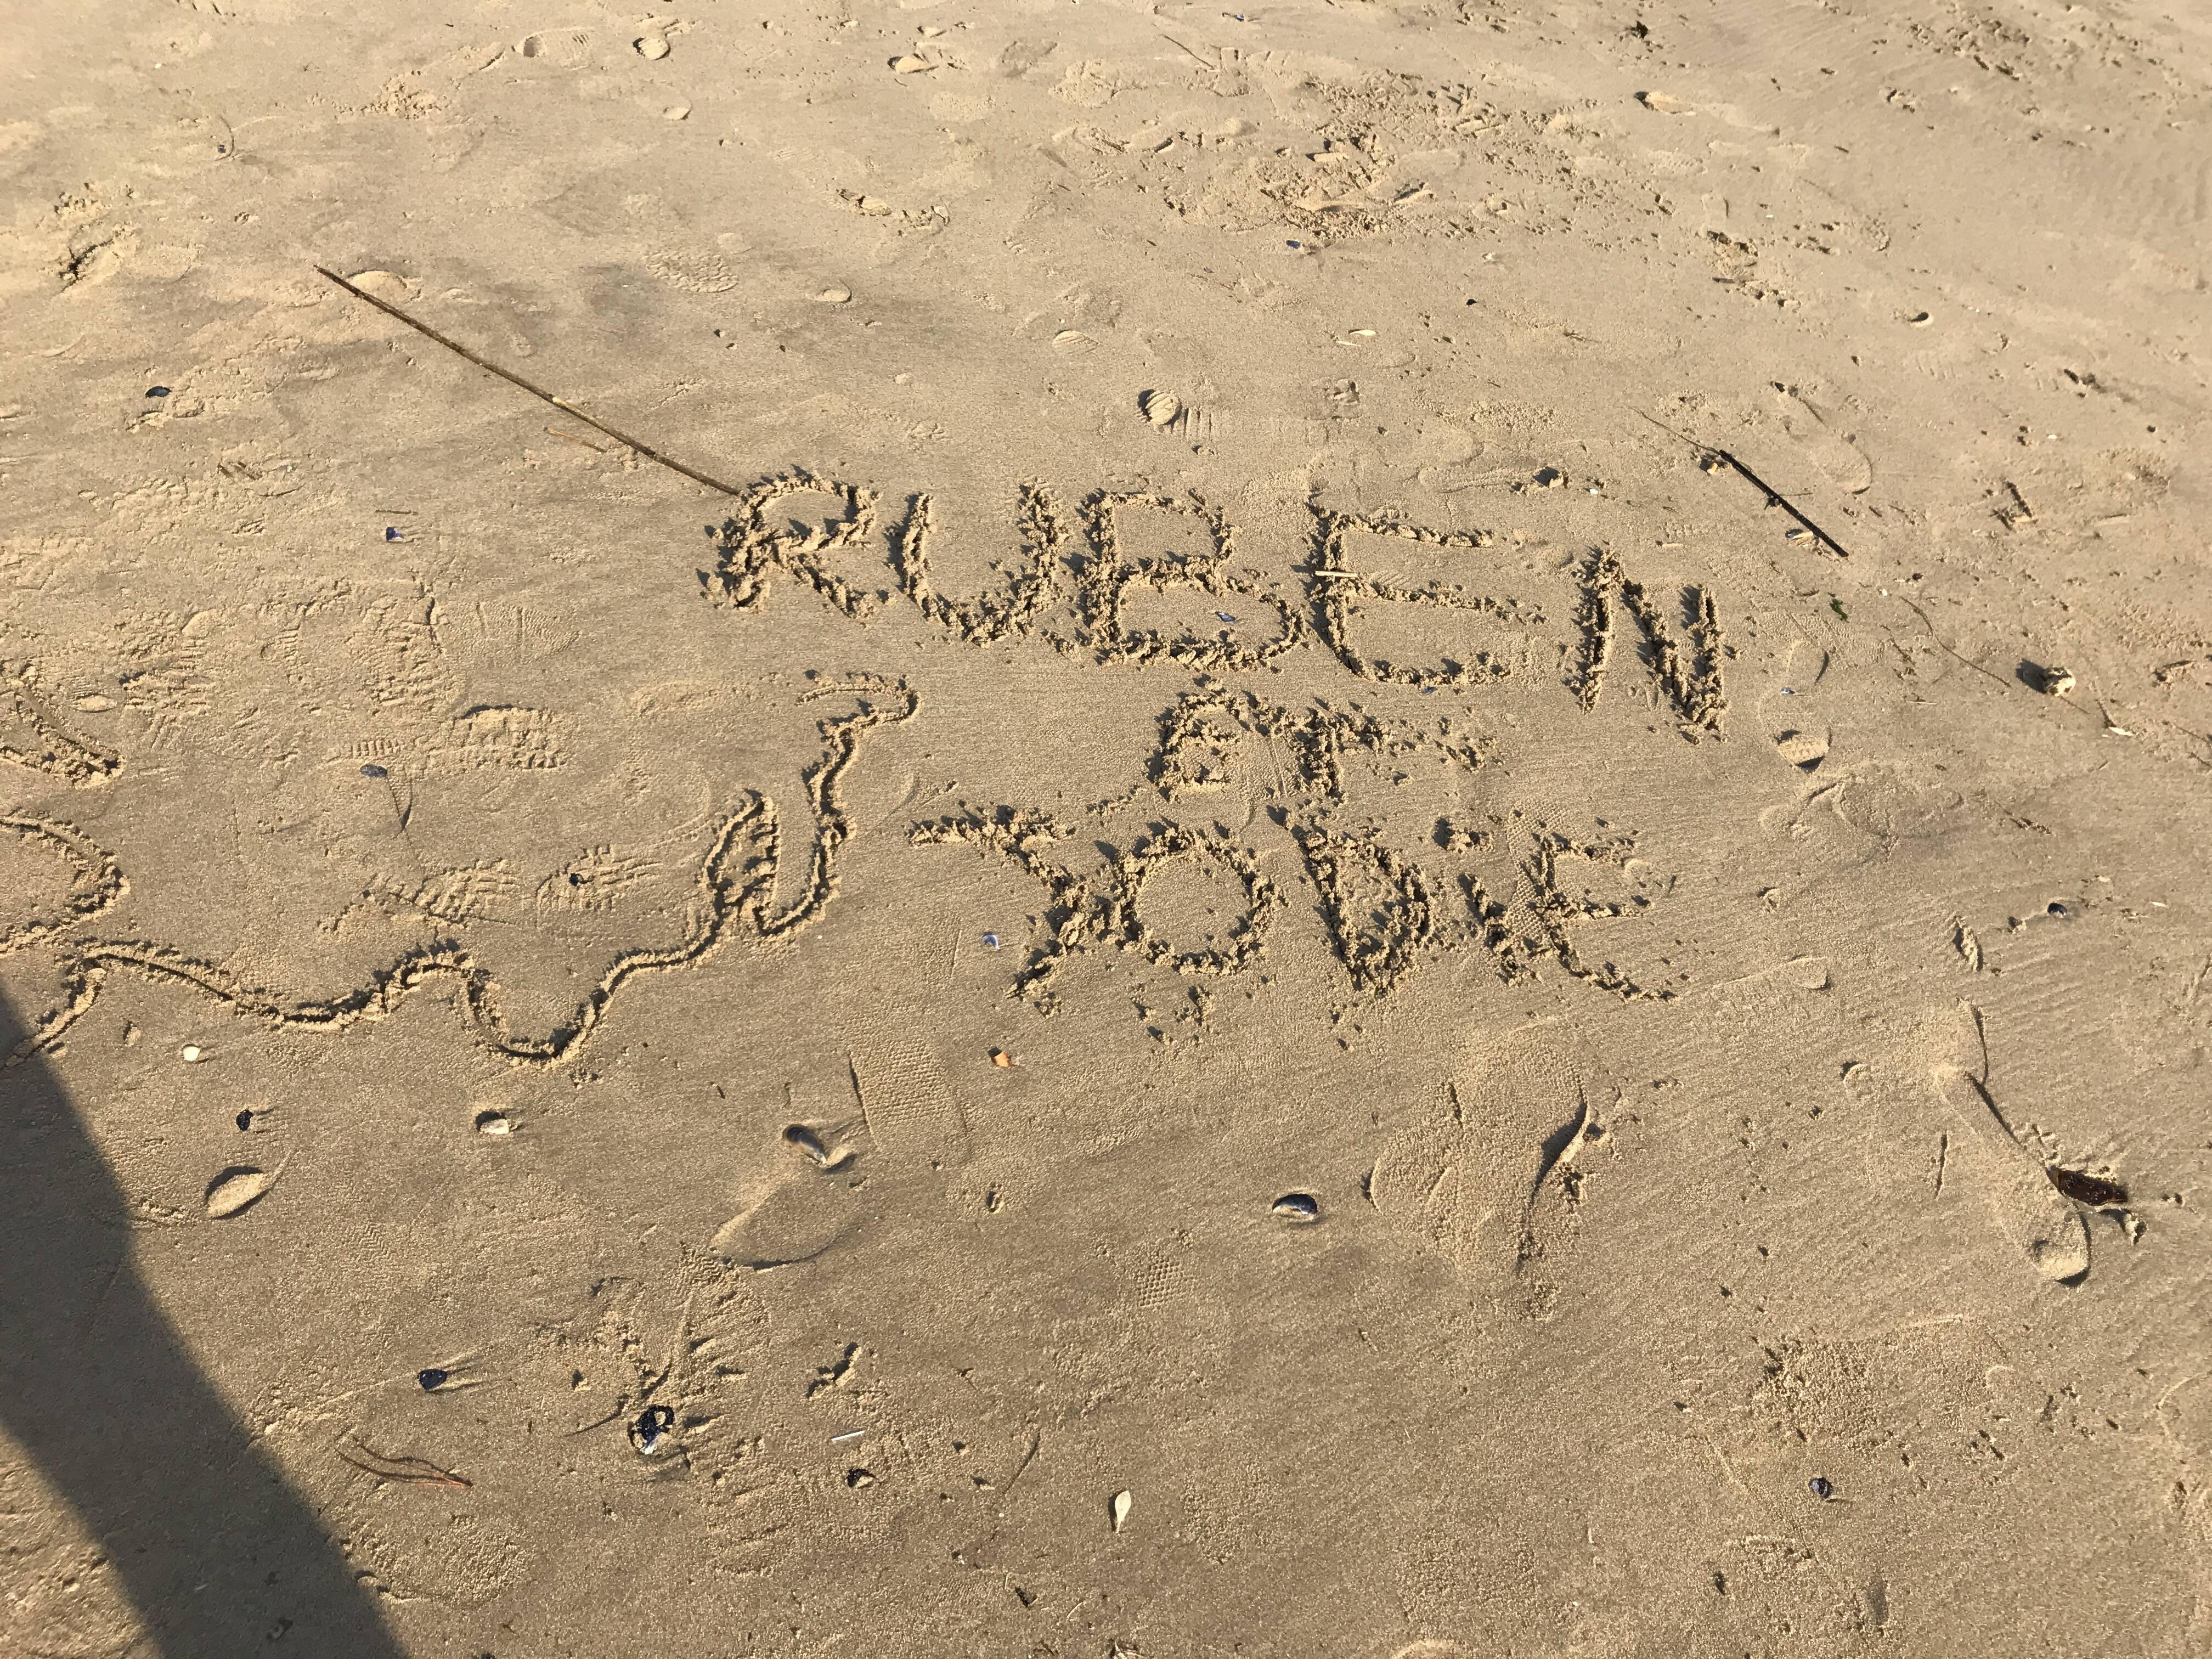 RUBEN
ET
JODIE